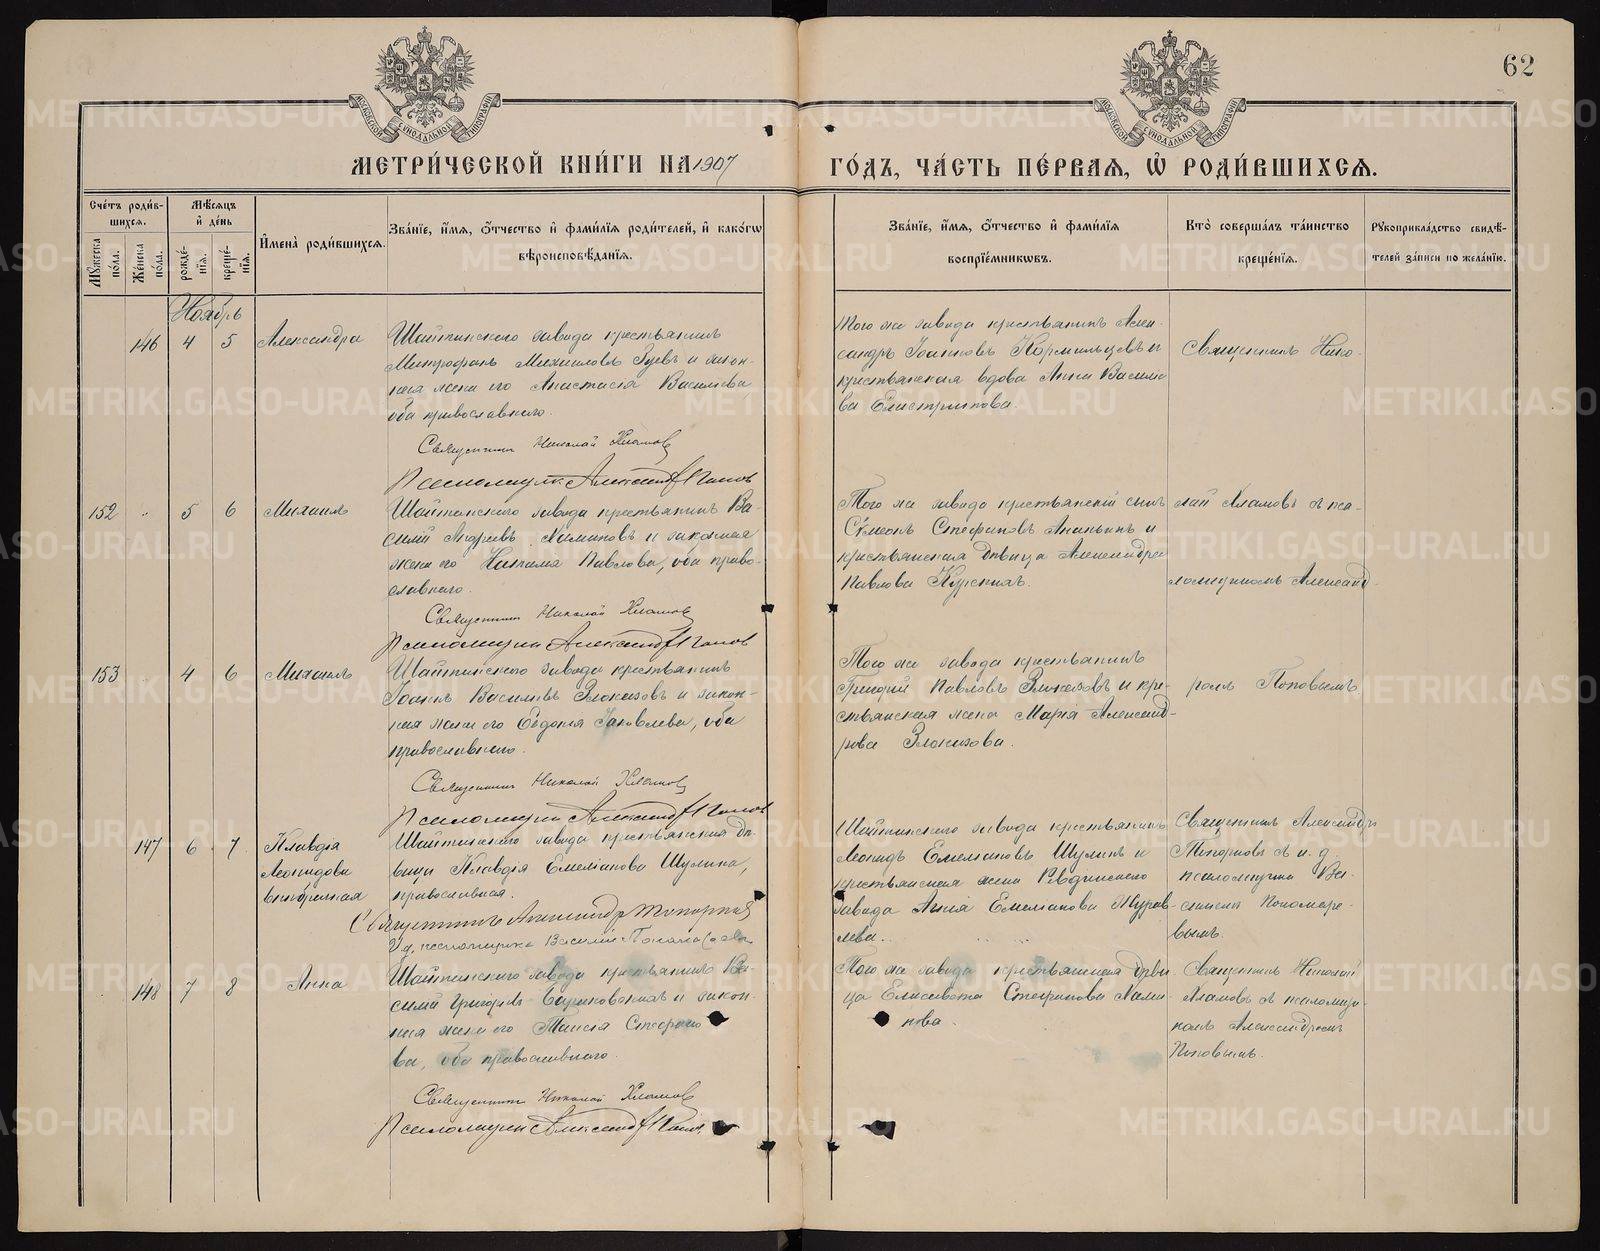 62
МОСКОВСКОЙ СѴНОДАЛЬНОЙ ТИПОГРАФІИ
МОСКОВСКОЙ СѴНОДАЛЬНОЙ ТИПОГРАФІИ
МЕТРИ́ЧЕСКОЙ КНИ́ГИ НА 1907
ГО́ДЪ, ЧА́СТЬ ПЕ́РВАЯ, Ѡ РОДИ́ВШИХСЯ.
Сче́тъ роди́в-
шихся.
Мꙋ́жеска
по́ла.
Же́нска
по́ла.
Мѣ́сяцъ
и҆ де́нь
рожде́-
нїя.
креще́-
нїя.
И҆мена̀ роди́вшихся.
Зва́нїе, и҆́мя, ѻ҆́тчество и҆ фами́лїя роди́телей, и҆ како́гѡ
вѣроисповѣ́данїя.
Зва́нїе, и҆́мя, ѻ҆́тчество и҆ фами́лїя
воспрїе́мникѡвъ.
Кто̀ соверша́лъ та́инство
креще́нїя.
Рꙋкоприкла́дство свидѣ́-
телей за́писи по жела́нїю.
Ноябрь
146 4 5 Александра
Шайтанского завода крестьянинъ
Митрофанъ Михаиловъ Зуевъ и закон-
ная жена его Анастасія Василіева,
оба православнаго.
Священникъ Николай Хламов
Псаломщик Александр Попов
Того же завода крестьянинъ Алек-
сандръ Іоанновъ Кормильцевъ и
крестьянская вдова Анна Василіе
ва Елистратова.
Священникъ Нико-
152 " 5 6 Михаилъ
Шайтанского завода крестьянинъ Ва-
силій Андреевъ и законная
жена его Павлова, оба право-
славнаго.
Священник Николай Хламов
Псаломщик Александр Попов
Того же завода крестьянскій сынъ
Сѵмеонъ Стефановъ Ананьинъ и
крестьянская дѣвица Александра
Павлова Курскихъ.
лай Хламовъ съ пса-
ломщикомъ Александ-
153 4 6 Михаилъ
Шайтанского завода крестьянинъ
Іоаннъ Василіевъ Злоказовъ и закон-
ная жена его Евдокія Іаковлева, оба
православнаго.
Священникъ Николай Хламов
Псаломщик Александр Попов
Того же завода крестьянинъ
Григорій Павловъ Злоказовъ и кре-
стьянская жена Марія Александ-
рова Злоказова.
ромъ Поповымъ
147 6 7 Клавдія
Леонидова
внѣбрачная
Шайтанского завода крестьянская дѣ-
вица Клавдія Емеліанова Шулина,
православная.
Священникъ Александръ Топорков
И д. псаломщика Василий Пономарев
Шайтанского завода крестьянинъ
Леонидъ Емеліановъ Шулинъ и
крестьянская жена Ревдинского
завода Анна Емеліанова Мурав-
лева.
Священникъ Александръ
Топорковъ съ и. д.
псаломщика Ва-
силіемъ Пономаре-
вымъ.
148 7 8 Анна
Шайтанского завода крестьянинъ Ва-
силій Григоріевъ и закон-
ная жена его Таисія Стефано
ва, оба православнаго.
Священник Николай Хламов
Псаломщик Александр Попов
Того же завода крестьянская дѣви
ца Елисавета Стефанова
нова.
Священникъ Николай
Хламовъ съ псаломщи-
комъ Александромъ
Поповымъ.
METRIKI.GASO-URAL.RU